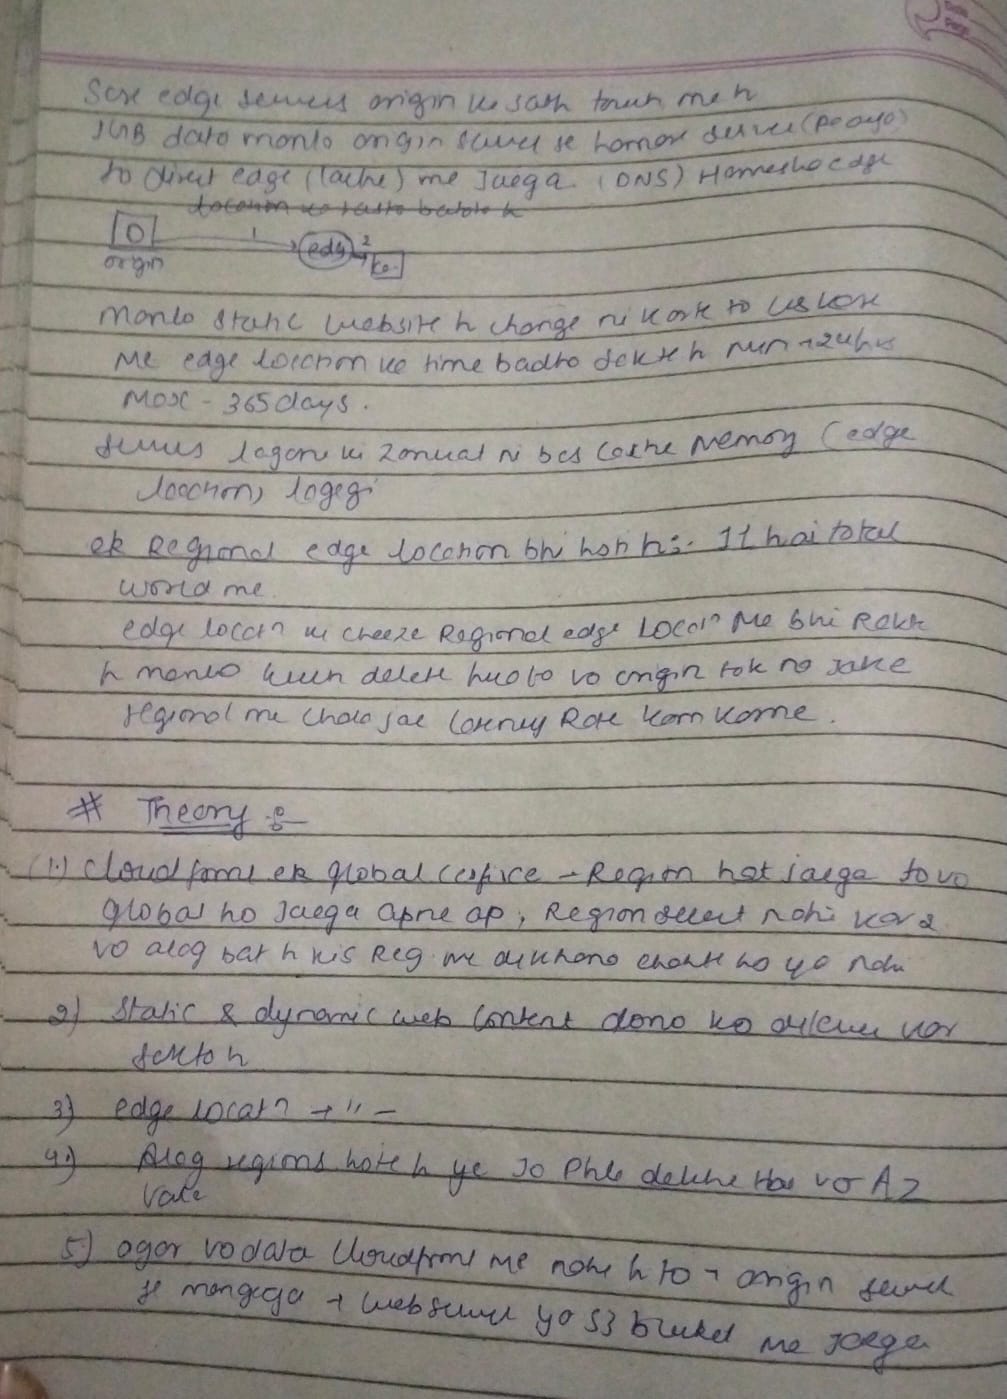 Date
Page
Sare edge servers origin ke sath touch me h
1GB data manlo origin server se hamare server (pe aya)
to direct edge (cache) me Jaega. (DNS) Hamesha edge
location ka rasta batata h
O 1 edge 2
origin
manlo static website h change ni karte to us case
me edge location ke time badha sekte h min → 24hrs
Max - 365 days.
servers lagane ki zarurat ni bas Cache Memory (edge
location) lagegi
ek Regional edge location bhi hoti h:- 11 hai total
world me.
edge locatn ke cheeze Regional edge Locatn Me bhi Rakte
h manlo kuch delete hua to vo origin tak na Jake
regional me chala jae Latency Rate kam karne.
# Theory :-
(1.) Cloudfront ek global service → Region hat jaega to vo
global ho Jaega apne ap, Region select nahi karna
vo alag bat h kis Reg. me dikhana chahte ho ya nahi
2) Static & dynamic web Content dono ko deliver kar
sekta h
3) edge locatn → " —
4.) Alag regions hote h ye Jo Phle dekhe the vo AZ
vale
5.) agar vo data Cloudfront me nahi h to → origin server
se mangega → webserver ya S3 bucket me Jaega